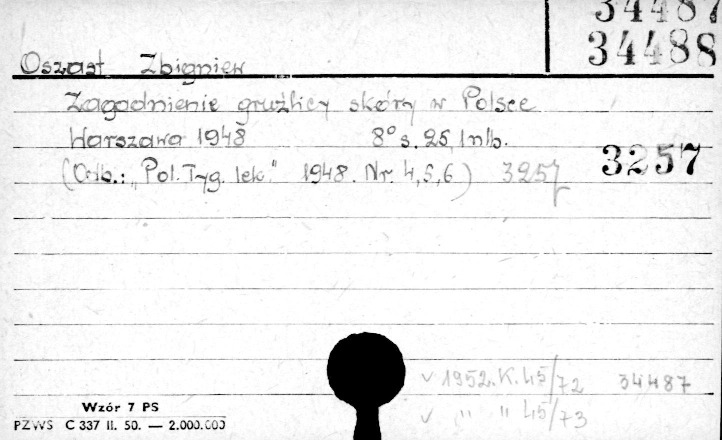 34487
34488
Oszast Zbigniew
Zagadnienie gruźlicy skóry w Polsce
Warszawa 1948 8° s. 25, 1 nlb.
3257
(Odb.: „Pol. Tyg. lek." 1948. Nr. 4,5,6) 3257
v 1952. K. 45/72 34487
v " " 45/73
Wzór 7 PS
PZWS C 337 II. 50. — 2.000.000